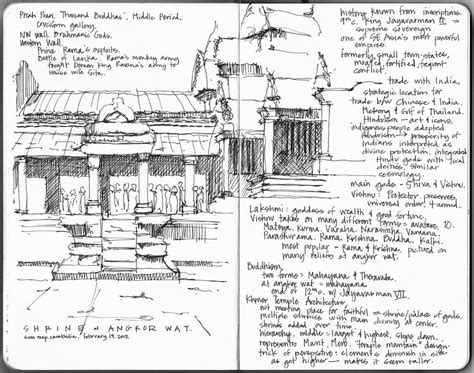 Preah Poan. Thousand Buddhas', Middle Period.
Cruciform gallery.
NW wall Brahmanic Gods.
Western Wall.
Prince Rama's exploits.
Battle of Lanka. Rama's monkey army
fought Demon King Ravana's army to
rescue wife Sita.
SHRINE @ ANGKOR WAT.
siem reap, cambodia. february 19, 2012
history known from inscriptions.
9th c. King Jayavarman II =
supreme sovereign
one of SE Asia's most powerful
empires.
formerly small town-states,
moated, fortified, frequent
conflict.
trade with India.
strategic location for
trade b/w Chinese & India.
Mekong & Gulf of Thailand.
Hinduism — art & icons,
indigenous people adopted
Sanskrit → prosperity of
Indians interpreted as
divine protection. integrated
Hindu gods with local
deities. similar
cosmology.
main gods - Shiva & Vishnu.
Vishnu: Protector, preserves
universal order, 4-armed.
Lakshmi: goddess of wealth & good fortune,
Vishnu takes on many different forms = avatars, 10.
Matsya, Kurma, Varaha, Narasimha, Vamana,
Parashurama, Rama, Krishna, Buddha, Kalki.
most popular - Rama & Krishna, pictured on
many reliefs at angkor wat.
Buddhism,
two forms = Mahayana & Theravada.
at angkor wat = mahayana
end of 12th c. w/ Jayavarman VII.
Khmer Temple Architecture.
not meeting place for faithful → shrine/palace of gods.
multiple shrines with main divinity at center.
shrines added over time.
hierarchy, middle = largest & highest, steps down.
represents Mount Meru. "temple mountain" design.
trick of perspective: elements diminish in size
as get higher — makes it seem taller.